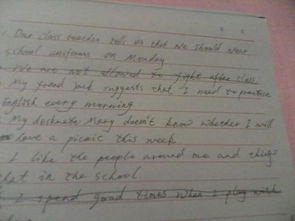 1. Our class teacher tell us that we should wear
school uniforms on Monday
We are not allowed to fight after class
My friend Jack suggests that I need to practice
English every morning
My deskmate Mary doesn't know whether I will
have a picnic this week
I like the people around me and things
that in the school
I spend good times when I play with